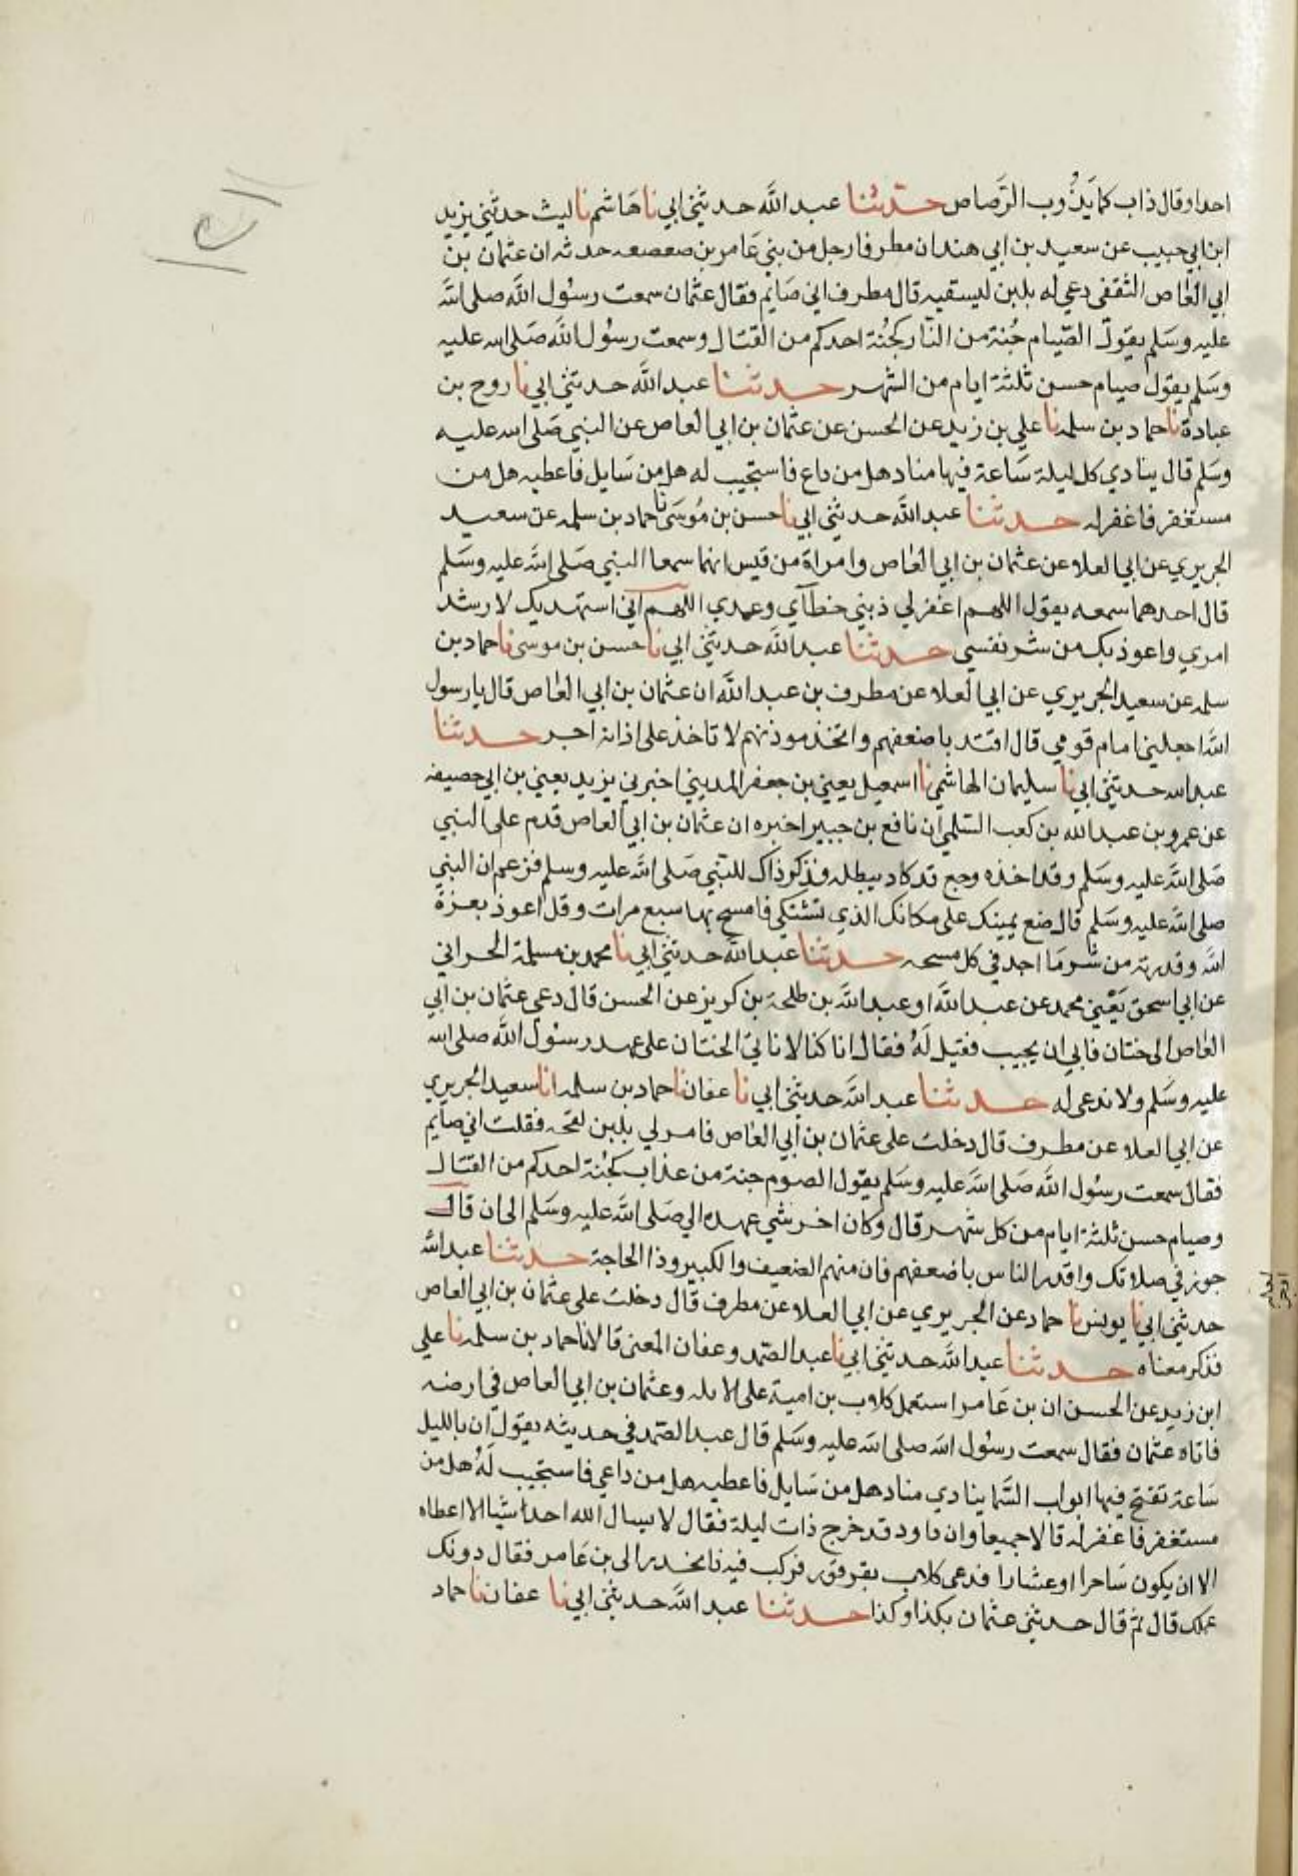 احدا وقال ذاب كما يَذُوب الرَّصاص حدثنا عبد الله حدثني ابي نا هاشم نا ليث حدثني يزيد
ابن ابي حبيب عن سعيد بن ابي هند ان مطرفا رجل من بني عامر بن صعصعه حدثه ان عثمان بن
ابي العاص الثقفي دعي له بلبن ليسقيه قال مطرف اني صَايم فقال عثمان سمعت رسول الله صلى الله
عليه وسَلم يقول الصّيام جُنة من النار كجُنة احدكم من القتال وسمعت رسُول الله صَلى الله عليه
وسَلم يقول صيام حسن ثلثة ايام من الشهر حدثنا عبد الله حدثني ابي نا روح بن
عبادة نا حماد بن سلمه نا علي بن زيد عن الحسن عن عثمان بن ابي العاص عن النبي صَلى الله عليه
وسَلم قال ينادي كل ليلة سَاعة فيها مناد هل من داع فاستجيب له هل من سَايل فاعطيه هل من
مستغفر فاغفر له حدثنا عبد الله حدثني ابي نا حسن بن مُوسَى نا حماد بن سلمه عن سعيد
الجريري عن ابي العلا عن عثمان بن ابي العاص وامراة من قيس انهما سمعا النبي صَلى الله عليه وسَلم
قال احدهما سمعه يقول اللهم اغفر لي ذنبي خطآي وعمدي اللهم اني استهديك لا رشد
امري واعوذ بك من شر نفسي حدثنا عبد الله حدثني ابي نا حسن بن موسى نا حماد بن
سلمه عن سعيد الجريري عن ابي العلا عن مطرف بن عبد الله ان عثمان بن ابي العاص قال يا رسول
الله اجعلني امام قومي قال اقتد باضعفهم واتخذ موذنهم لا تاخذ على اذانه اجر حدثنا
عبد الله حدثني ابي نا سليمان الهاشمي نا اسمعيل يعني بن جعفر المديني اخبرني يزيد يعني بن ابي حصيفه
عن عمرو بن عبد الله بن كعب السّلمي ان نافع بن جبير اخبره ان عثمان بن ابي العاص قدم على النبي
صَلى الله عليه وسَلم وقد اخذه وجع قد كاد يبطله فذكر ذاك للنبي صَلى الله عليه وسلم فزعم ان النبي
صلى الله عليه وسَلم قال ضع يمينك على مكانك الذي تشتكي فامسح بها سبع مرات وقل اعوذ بعزة
الله وقدرته من شر مَا اجد في كل مسحه حدثنا عبد الله حدثني ابي نا محمد بن مسلمة الحراني
عن ابي اسحق يَعْني محمد عن عبد الله او عبد الله بن طلحة بن كريز عن الحسن قال دعي عثمان بن ابي
العاص الى ختان فابى ان يجيب فقيل لَهُ فقال انا كنا لا ناتي الختان على عهد رسُول الله صلى الله
عليه وسَلم ولا ندعى له حدثنا عبد الله حدثني ابي نا عفان نا حماد بن سلمه انا سعيد الجريري
عن ابي العلا عن مطرف قال دخلت على عثمان بن ابي العاص فامر لي بلبن لقحه فقلت اني صايم
فقال سمعت رسُول الله صَلى الله عليه وسَلم يقول الصوم جنة من عذاب كجُنة احدكم من القتال
وصيام حسن ثلثة ايام من كل شهر قال وكان اخر شي عهده الي صَلى الله عليه وسَلم الى ان قال
جوز في صلاتك واقدر الناس باضعفهم فان منهم الضعيف والكبير وذا الحاجة حدثنا عبد الله
حدثني ابي نا يونس نا حماد عن الجريري عن ابي العلا عن مطرف قال دخلت على عثمان بن ابي العاص
فذكر معناه حدثنا عبد الله حدثني ابي نا عبد الصّمد وعفان المعنى قالا نا حماد بن سلمه نا علي
ابن زيد عن الحسن ان بن عَامر استعمل كلاب بن امية على الابله وعثمان بن ابي العاص في ارضه
فاتاه عثمان فقال سمعت رسُول الله صلى الله عليه وسَلم قال عبد الصّمد في حديثه يقول ان بالليل
سَاعة تفتح فيها ابواب السَّما ينادي مناد هل من سَايل فاعطيه هل من داعي فاستجيب لَهُ هل من
مستغفر فاغفر له قالا جميعا وان داود قد خرج ذات ليلة فقال لا يسال الله احدا شيا الا اعطاه
الا ان يكون سَاحرا او عشارا فدعى كلاب بقرقور فركب فيه فانحدر الى بن عَامر فقال دونك
عملك قال ثم قال حدثني عثمان بكذا وكذا حدثنا عبد الله حدثني ابي نا عفان نا حماد